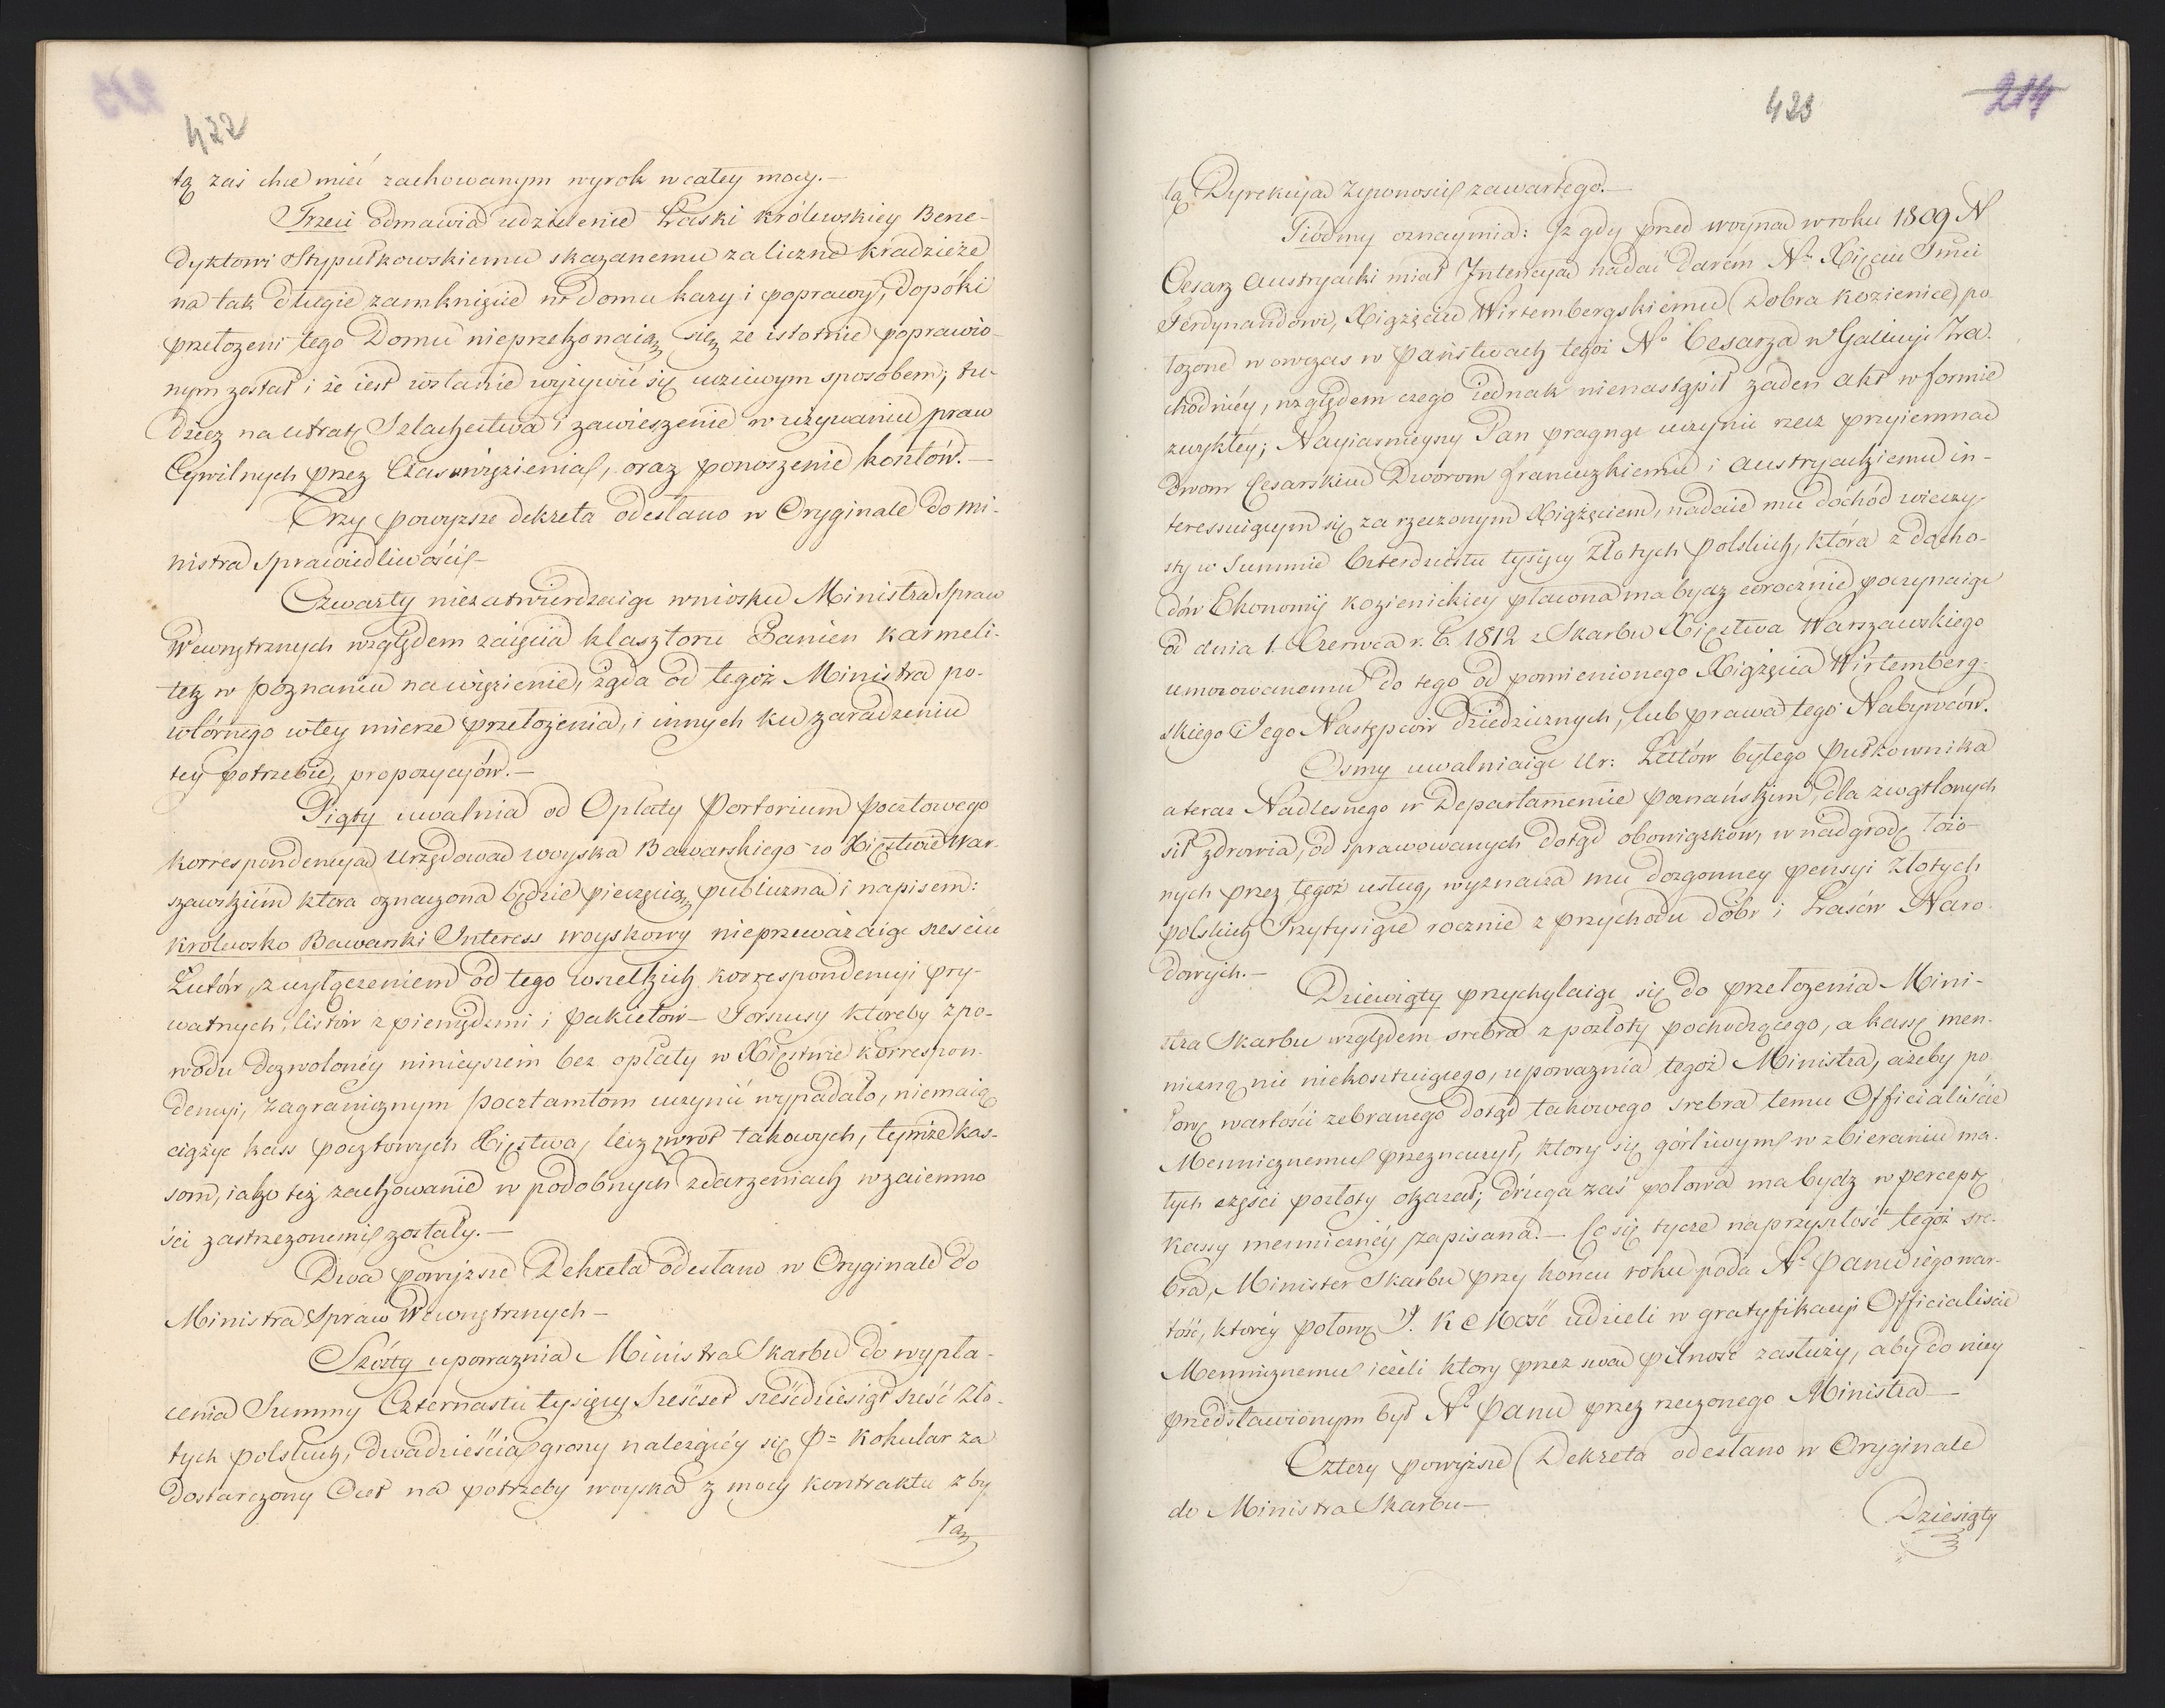 422
tą zaś chce mieć zachowanym wyrok w całey mocy.—
Trzeci odmawia udzielenie Łaski królewskiey Bene-
dyktowi Stypułkowskiemu skazanemu za liczne kradzieże
na tak długie zamknięcie w domu kary i poprawy, dopóki
przełożeni tego Domu nieprzekonaią się że istotnie poprawio-
nym został i że iest wstanie wyżywić się uczciwym sposobem; tu-
dzież na utratę Szlachectwa i zawieszenie w używaniu praw
Cywilnych przez Czas więzienia, oraz ponoszenie kosztów.—
Trzy powyższe dekreta odesłano w Oryginale do Mi-
nistra Sprawiedliwości—
Czwarty niezatwierdzaiąc wniosku Ministra Spraw
Wewnętrznych względem zaięcia klasztoru Panien Karmeli-
tek w Poznaniu na więzienie, żąda od tegoż Ministra po-
wtórnego wtey mierze przełożenia, i innych ku zaradzeniu
tey potrzebie, propozycyów.—
Piąty uwalnia od Opłaty Portorium pocztowego
korrespondencyą Urzędową woyska Bawarskiego w Xięstwie War-
szawskiém która oznaczona będzie pieczęcią publiczną i napisem:
Królewsko Bawarski Interess woyskowy nieprzeważaiąc sześciu
Łutów, z wyłączeniem od tego wszelkich korrespondencyi pry-
watnych, listów z pieniędzmi i pakietów— Forszusy któreby z po-
wodu dozwolonéy ninieyszém bez opłaty w Xięstwie korrespon-
dencyi, zagranicznym pocztamtom uczynić wypadało, niemaią
ciążyć kass pocztowych Xięstwa, lecz zwrot takowych, tymże kas-
som, iako też zachowanie w podobnych zdarzeniach wzaiemno
ści zastrzeżonemi zostały.—
Dwa powyższe Dekreta odesłano w Oryginale do
Ministra Spraw Wewnętrznych—
Szósty upoważnia Ministra Skarbu do wypła-
cenia Summy Czternastu tysięcy sześćset sześćdziesiąt sześć Zło-
tych polskich, dwadzieścia groszy należącéy się P= Kohular za
dostarczony Ocet na potrzeby woyska z mocy kontraktu z by
łą
423
214
łą Dyrekcyą Żywności zawartego.—
Siódmy oznaymia: Iż gdy przed woyną w roku 1809 N
Cesarz Austryacki miał Intencyą nadać Darém N. Xięciu Jmci
Ferdynandowi, Xiążęciu Wirtembergskiemu Dobra Kozienice, po-
łożone w owczas w państwach tegoż No Cesarza w Galicyi Za-
chodniéy, względem czego iednak nienastąpił żaden akt w formie
zwykłéy; Nayiaśnieyszy Pan pragnąc uczynić rzecz przyiemną
dwom Cesarskim Dworom francuzkiemu i Austryackiemu in-
teressuiącym się za rzeczonym Xiążęciem, nadaie mu dochód wieczy-
sty w Summie Czterdziestu tysięcy Złotych Polskich, która z docho-
dów Ekonomii kozienickiey płacona ma bydź corocznie, poczynaiąc
od dnia 1. Czerwca r. b. 1812 z Skarbu Xięstwa Warszawskiego
umocowanemu do tego od pomienionego Xiążęcia Wirtemberg-
skiego i Jego Następców dziedzicznych, lub prawa tego Nabywców.
Osmy uwalniaiąc Ur: Lettów byłego Pułkownika
a teraz Nadlesnego w Departamencie Poznańskim, dla zwątlonych
sił zdrowia, od sprawowanych dotąd obowiązków, w nadgrodę łożo-
nych przez tegoż usług, wyznacza mu dozgonney pensyi Złotych
polskich Trzy tysiące rocznie z przychodu dóbr i Lasów Naro-
dowych.—
Dziewiąty przychylaiąc się do przełożenia Mini-
stra Skarbu względem srebra z pozłoty pochodzącego, a kassę men-
niczną nic niekosztuiącego, upoważnia tegoż Ministra, ażeby po-
łowę wartości zebranego dotąd takowego srebra temu Officialiście
Mennicznemu przeznaczył, który się górliwym w zbieraniu ma-
łych części pozłoty okazał; druga zaś połowa ma bydź w perceptę
Kassy menniczney zapisana.— Co się tycze naprzyszłość tegoż sre-
bra, Minister Skarbu przy końcu roku poda N. Panu iego war-
tość, któréy połowę J. K. Mość udzieli w gratyfikacyi Officialiście
Mennicznemu ieżeli który przez swą pilność zasłuży, aby do niey
przedstawionym był No Panu przez rzeczonego Ministra—
Cztery powyższe Dekreta odesłano w Oryginale
do Ministra Skarbu—
Dziesiąty